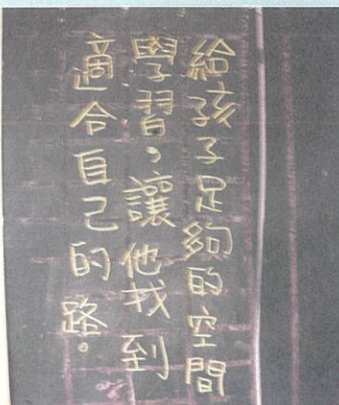 給孩子足夠的空間
學習，讓他找到
適合自己的路。